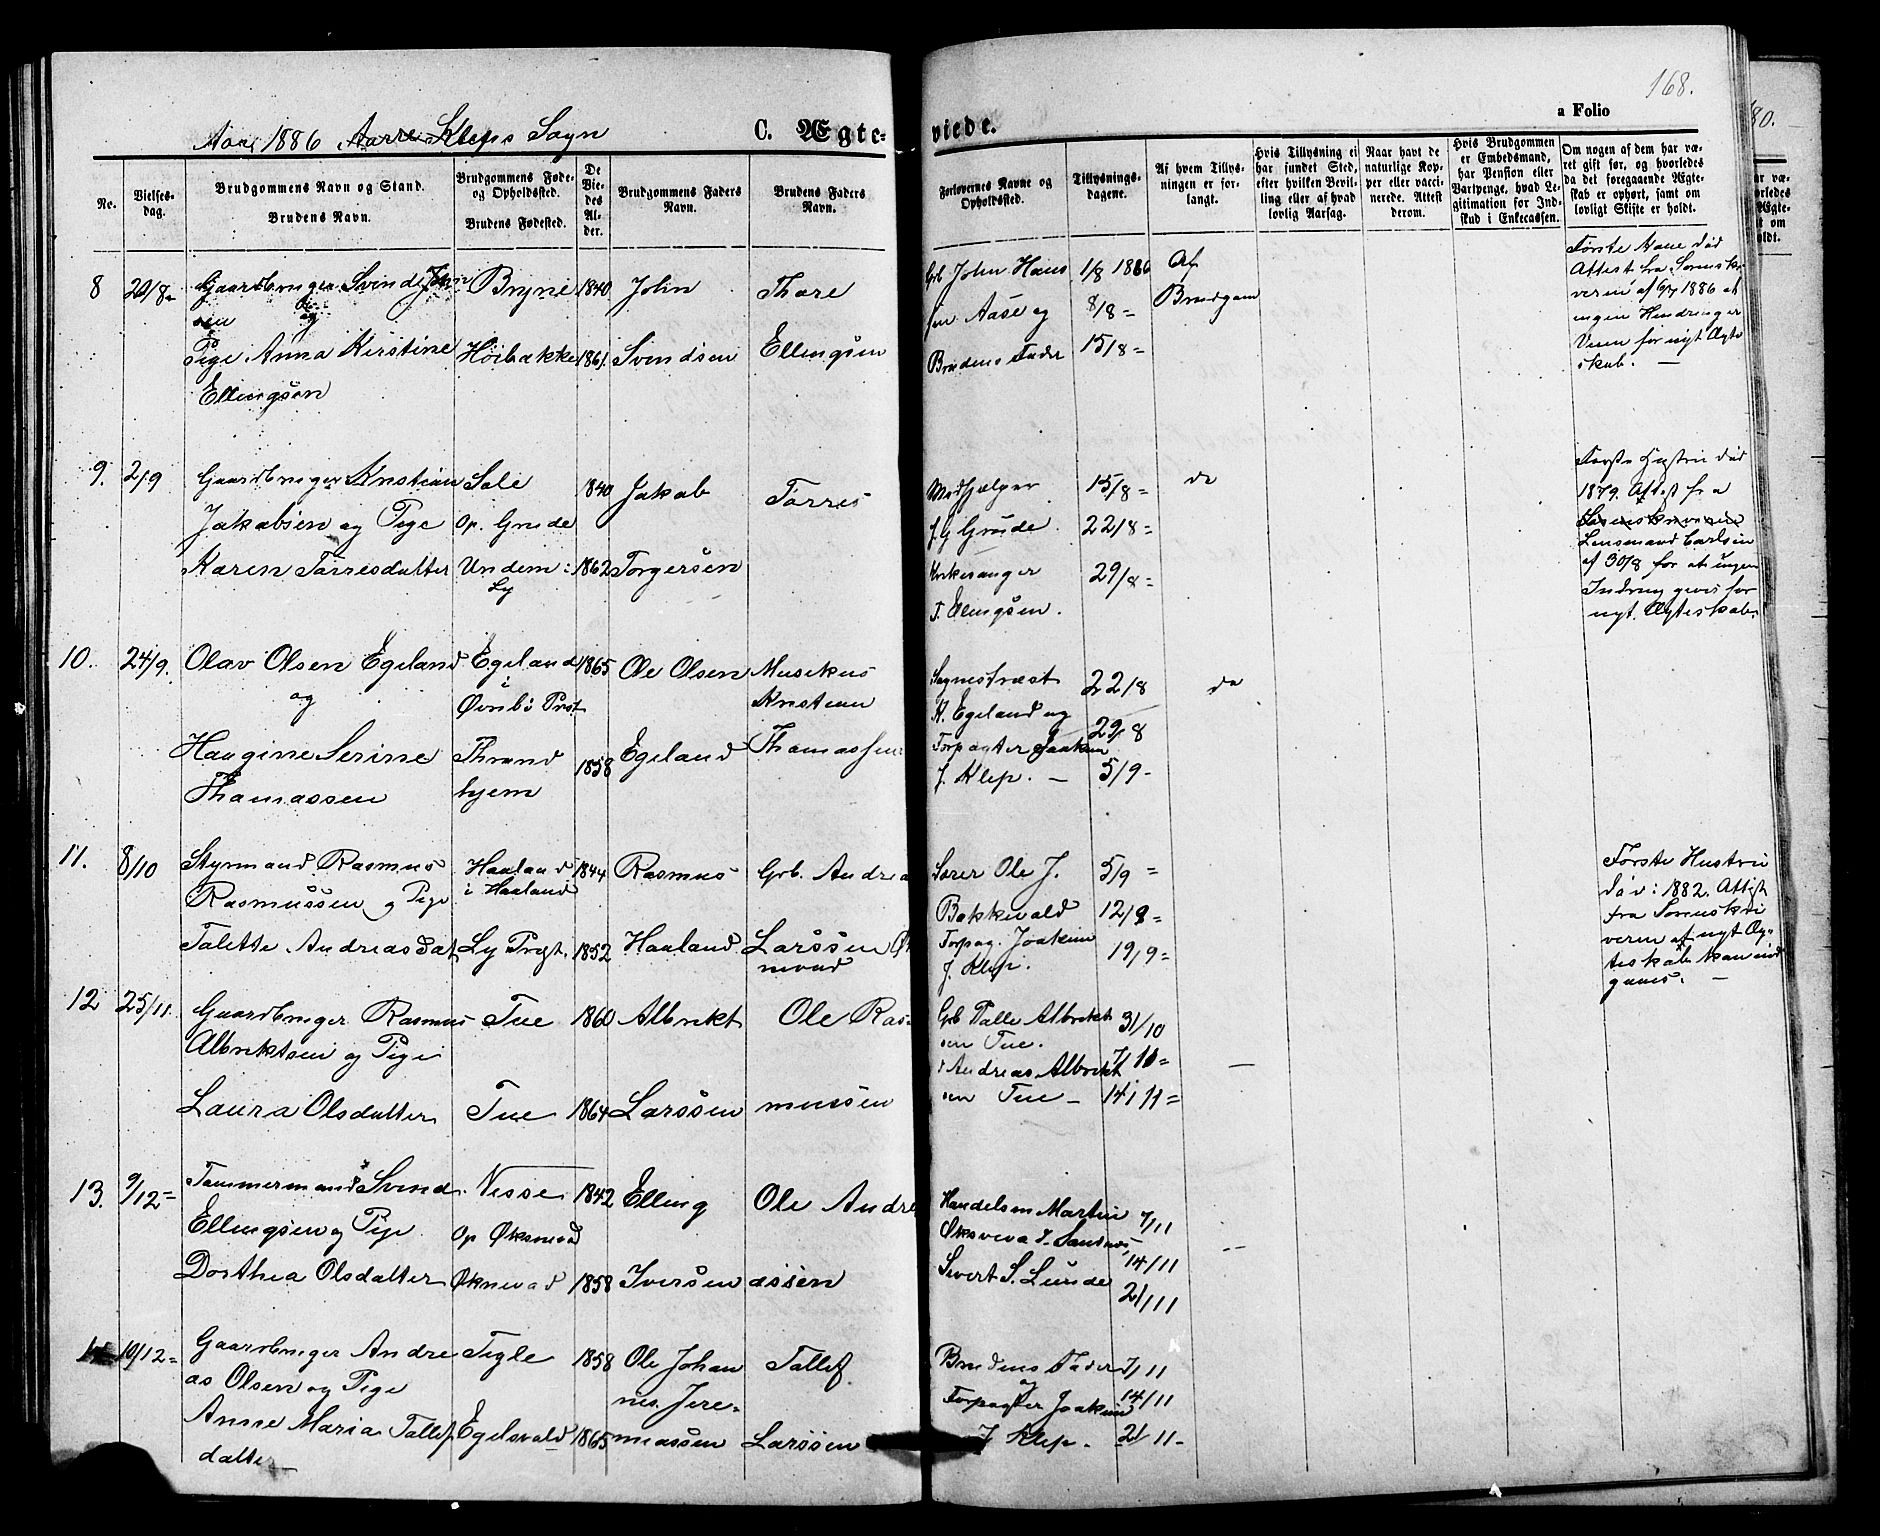 168.
Aar 1886 Aarre Kleps Sogn
C. Ægteviede.
a Folio
No.
Vielsesdag.
Brudgommens Navn og Stand.
Brudens Navn.
Brudgommens Føde- og Opholdssted.
Brudens Fødested.
De Viedes Alder.
Brudgommens Faders Navn.
Brudens Faders Navn.
Forlovernes Navne og Opholdssted.
Tillysningsdagene.
Af hvem Tillysningen er forlangt.
Hvis Tillysning ei har fundet Sted, efter hvilken Bevilling eller af hvad lovlig Aarsag.
Naar havt de naturlige Kopper eller vaccinerede. Attest derom.
Hvis Brudgommen er Embedsmand, har Pension eller Vartpenge, hvad Legitimation for Indskud i Enkecassen.
Om nogen af dem har været gift før, og hvorledes da det foregaaende Ægteskab er ophørt, samt om lovligt Skifte er holdt.
8 20/8 =
Gaardbruger Svend John
sen og
Pige Anna Kirstine
Ellingsen
Bryne 1840
Høibakke 1861
John
Svendsen
Thore
Ellingsen
Grb John Hans
sen Aase og
Brudens Fader
1/8 1886
8/8 =
15/8 =
Af
Brudgom
Første Kone død
Attest fra Sorenskri
veren af 9/7 1886 at
ingen Hindringer
Veien for nyt Ægte
skab. —
9. 2/9
Gaardbruger Kristian
Jakobsen og Pige
Karen Tørresdatter
Sole
Op. Grude
Undem:
Ly
1840
1862
Jakob
Torgersen
Tørres
Medhjælper
J. G Grude.
Kirkesanger
T. Ellingsen.
15/8 =
22/8 =
29/8 =
do
Første Hustru død
1879. Attest fra
Sorenskriveren
Lensmand Carlsen
af 30/8 for at ingen
Indsig. gives for
nyt Ægteskab.
10. 24/9.
Olav Olsen Egeland
og
Haugine Serine
Thomassen
Egeland
i
Øvrebø Prst
Thrond
hjem
1865
1858
Ole Olsen
Egeland
Musikus
Kristian
Thomassen
Sognepræst
H. Egeland og
Forpagter Joakim
J. Klep. —
22/8
29/8
5/9 -
do
11. 8/10
Styrmand Rasmus
Rasmussen og Pige
Talette Andreasdat
Haaland
i Haaland
Ly Prgt.
1844
1852
Rasmus
Haaland
Grb. Andrea
Larssen
Sører Ole J.
Bakkevald
Forpag. Joakim
J. Klep.
5/9 =
12/9 =
19/9 =
Første Hustru
død i 1882. Attest
fra Sorenskri
veren at nyt Æg-
teskab kan ind
gaaes. —
12 25/11.
Gaardbruger Rasmus
Albriktsen og Pige
Laura Olsdatter
Tue 1860
Tue 1864
Albrikt
Larssen
Ole Ras
mussen
Grb Talle Albrikt
sen Tue.
Andreas Albrikt
sen Tue -
31/10
7/11 =
14/11 =
—
13. 9/12 =
Tømmermand Svend
Ellingsen og Pige
Dorthea Olsdatter
Nesse
Op Øksnevad
Øksnevad
1842
1858
Elling
Iversen
Ole Andre
assen
Handelsm Martin
Øksnevad Sandnes
Sivert S. Lunde
7/11
14/11
21/11
—
10/12 =
Gaardbruger Andre
as Olsen og Pige
Anne Maria Tollef
datter
Tigle 1858
Egelsvald 1865
Ole Johan
nes Jere-
miassen
Tollef
Larssen
Brudens Fader
og
Forpagter Joakim
J Klep. -
7/11
14/11
21/11 -